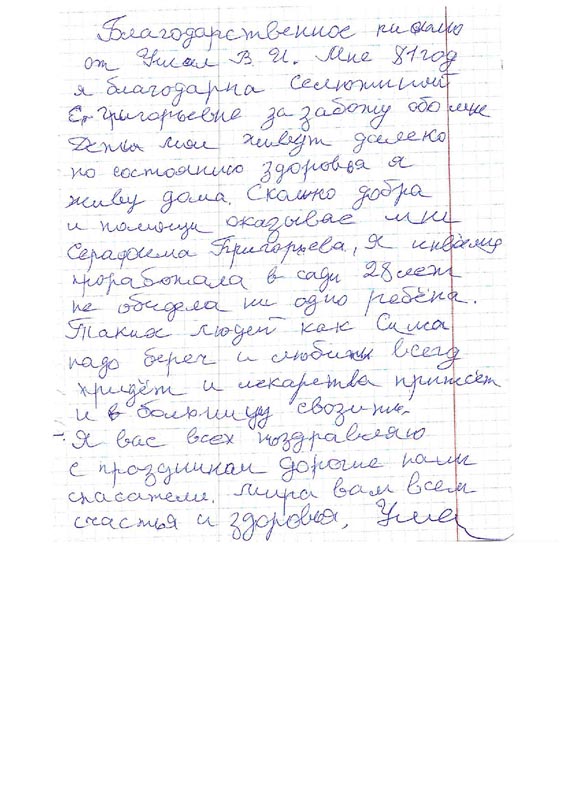 Благодарственное письмо
от В. И. Мне 81 год
я благодарна Селютиной
Григорьевне за заботу обо мне
Дети мои живут далеко
по состоянию здоровья я
живу дома. Сколько добра
и помощи оказывае мне
Серафима Григорьева, я
проработала в саду 28 лет
не обидела ни одно ребёна.
Таких людей как Сима
надо береч и любить всегд
придёт и лекарства принесёт
и в больницу свозит.
Я вас всех поздравляю
с праздником дорогие наши
спасатели. Мира вам всем
счастья и здоровья,